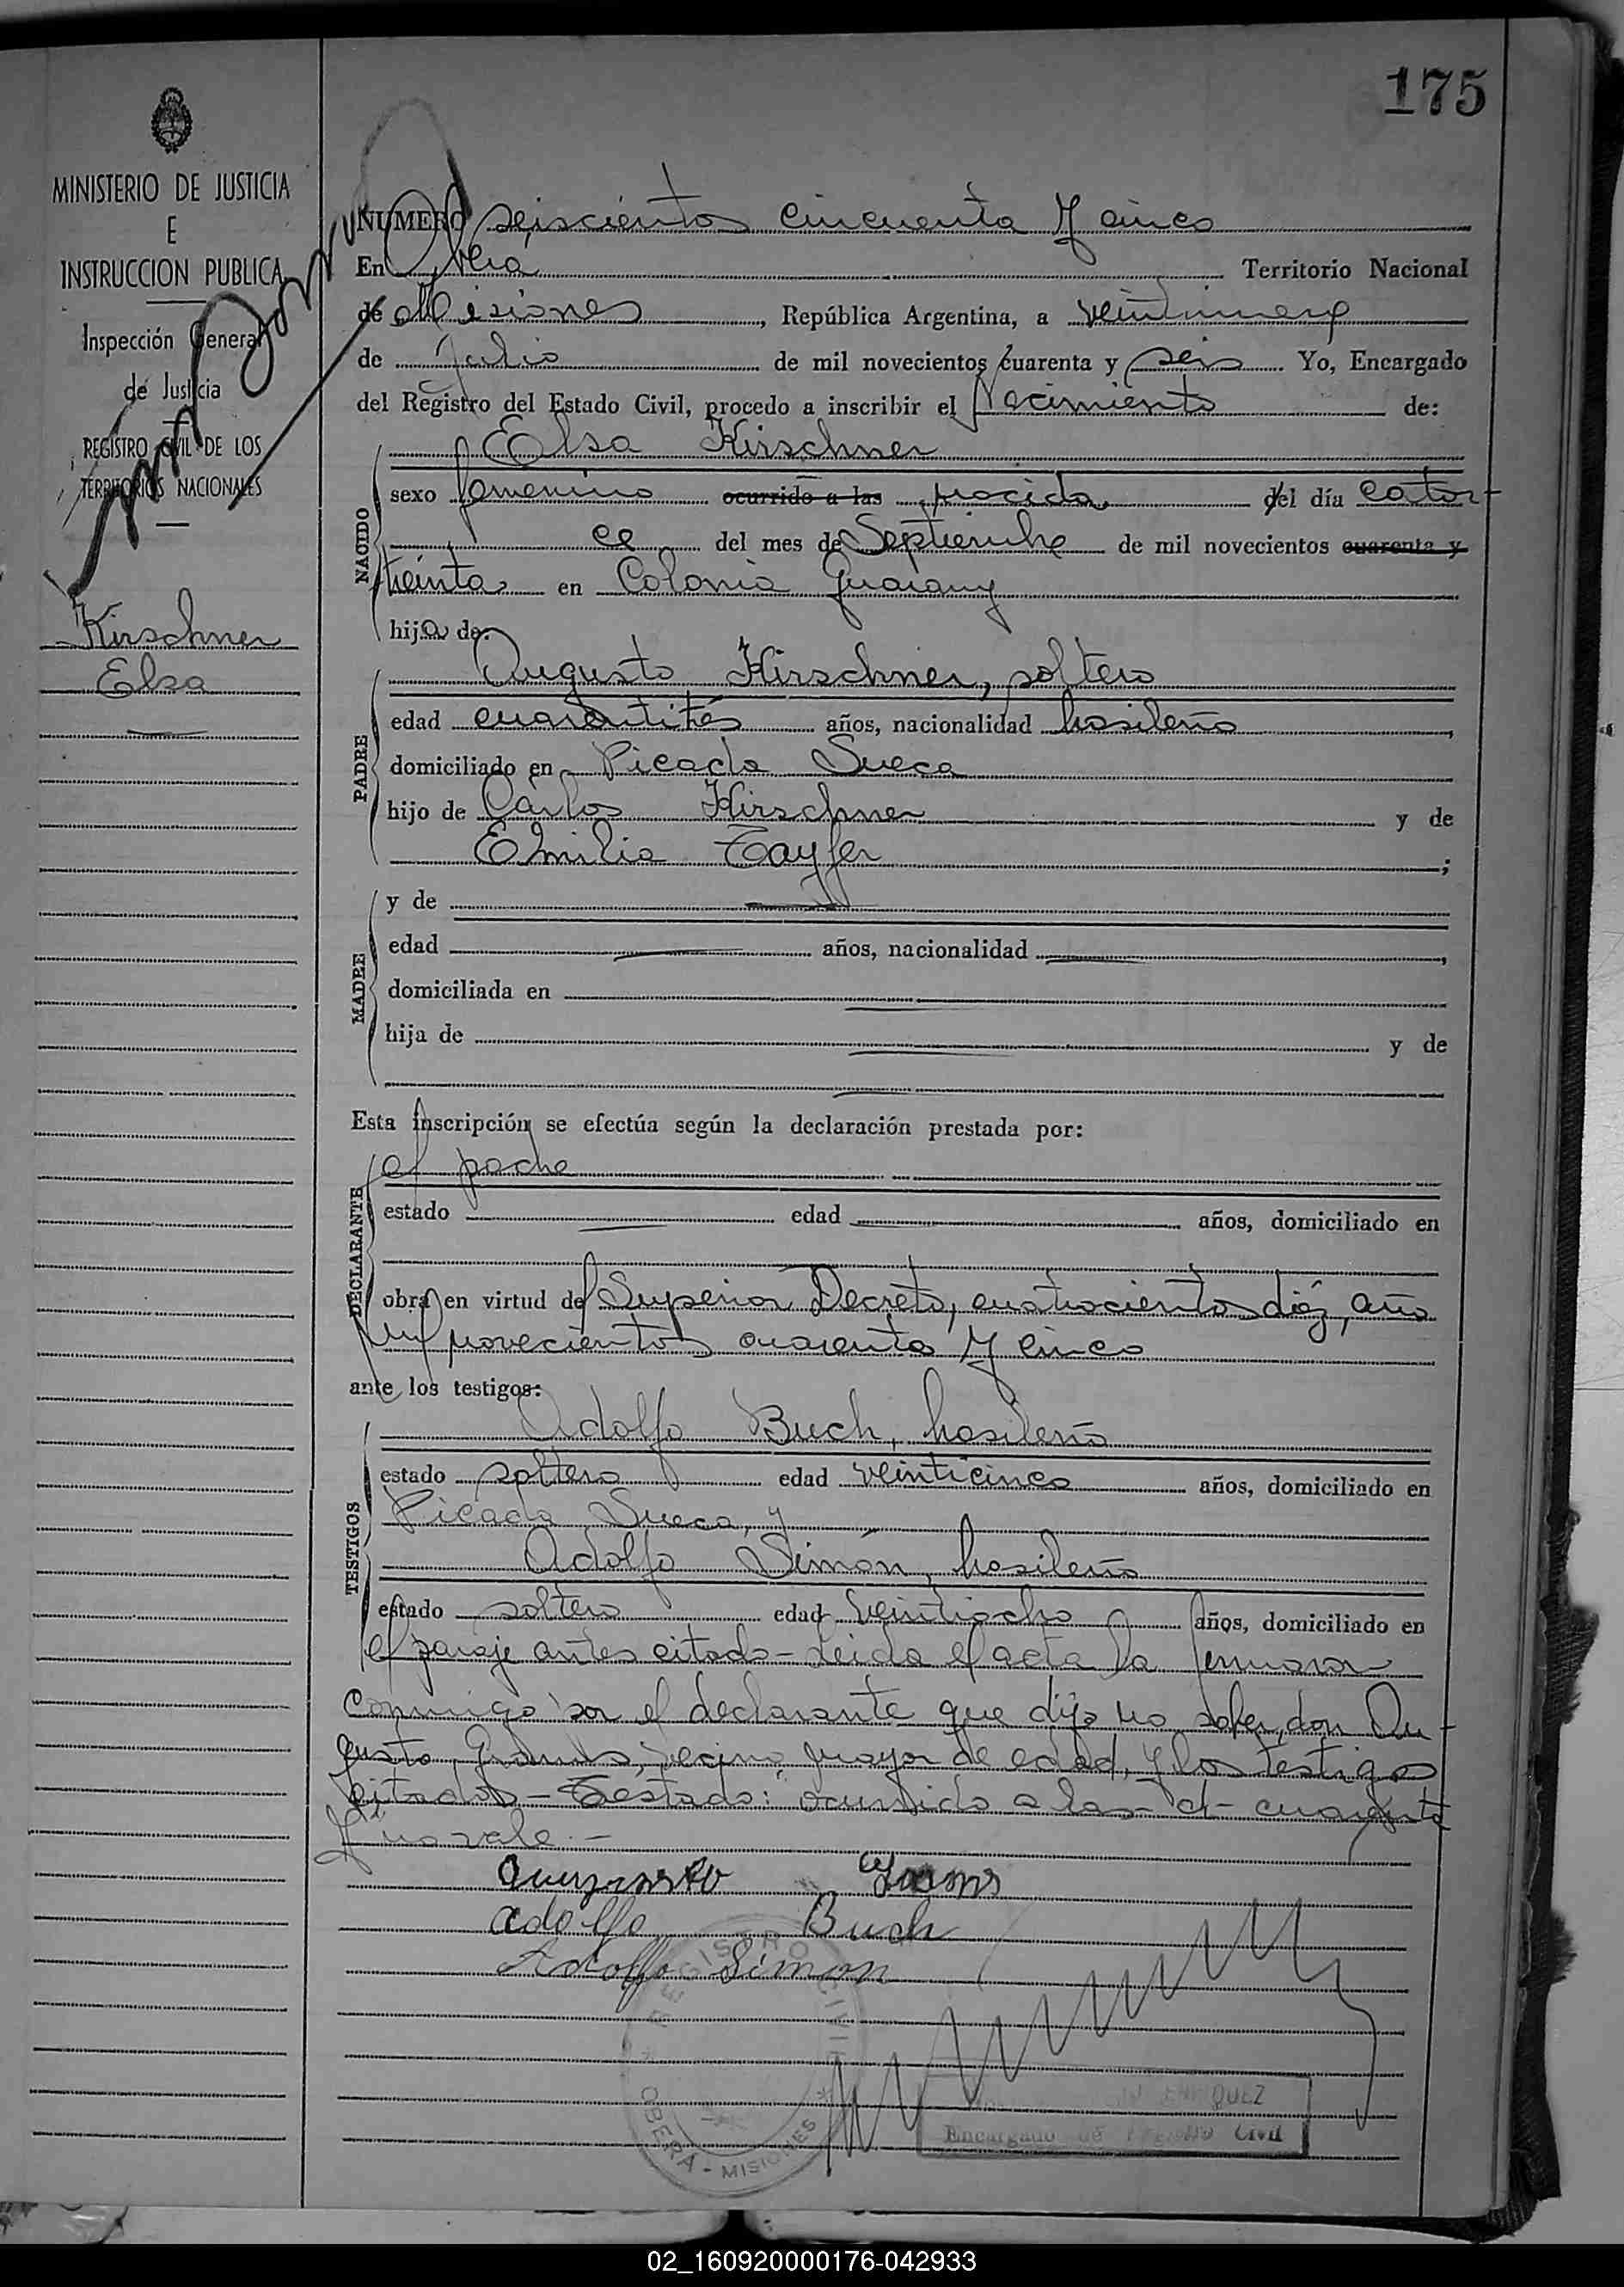 175
MINISTERIO DE JUSTICIA
E
INSTRUCCION PUBLICA
Inspección General
de Justicia
REGISTRO CIVIL DE LOS
TERRITORIOS NACIONALES
Kirschner
Elsa
NUMERO seiscientos cincuenta y cinco
En Oberá Territorio Nacional
de Misiones, República Argentina, a veintinueve
de Julio de mil novecientos cuarenta y seis Yo, Encargado
del Registro del Estado Civil, procedo a inscribir el Nacimiento de:
NACIDO
Elsa Kirschner
sexo femenino ocurrido a las nacida el día cator-
ce del mes de Septiembre de mil novecientos cuarenta y
treinta en Colonia Guarany
hija de:
PADRE
Augusto Kirschner, soltero
edad cuarentitrés años, nacionalidad brasileño,
domiciliado en Picada Sueca
hijo de Carlos Kirschner y de
Emilia Tayfer;
MADRE
y de
edad años, nacionalidad,
domiciliada en
hija de y de
Esta inscripción se efectúa según la declaración prestada por:
DECLARANTE
el padre
estado edad años, domiciliado en
obra en virtud del Superior Decreto, cuatrocientos diez, año
mil novecientos cuarenta y cinco
ante los testigos:
TESTIGOS
Adolfo Buch, brasileño
estado soltero edad veinticinco años, domiciliado en
Picada Sueca, y
Adolfo Simón, brasileño
estado soltero edad veintiocho años, domiciliado en
el paraje antes citado - Leida el acta la firmaron
conmigo por el declarante que dijo no saber, don Au-
gusto, vecino, mayor de edad, y los testigos
citados - Testado: ocurrido a las - d - cuarenta
y no vale. -
Adolfo Buch
Adolfo Simon
REGISTRO CIVIL
OBERA - MISIONES
Encargado de Registro Civil
02_160920000176-042933